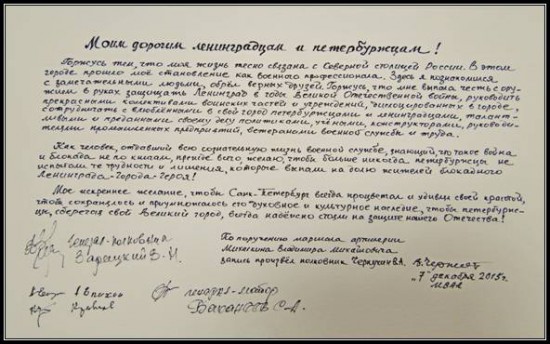 Моим дорогим ленинградцам и петербуржцам!
Горжусь тем, что моя жизнь тесно связана с Северной столицей России. В этом
городе прошло моё становление как военного профессионала. Здесь я познакомился
с замечательными людьми, обрёл верных друзей. Горжусь, что мне выпала честь с ору-
жием в руках защищать Ленинград в годы Великой Отечественной войны, руководить
прекрасными коллективами воинских частей и учреждений, дислоцированных в городе,
сотрудничать с влюблёнными в свой город петербуржцами и ленинградцами, талант-
ливыми и преданными своему делу политиками, учёными, конструкторами, руково-
дителями промышленных предприятий, ветеранами военной службы и труда.
Как человек, отдавший всю сознательную жизнь военной службе, знающий, что такое война
и блокада не по книгам, прежде всего желаю, чтобы больше никогда петербуржцы не
испытали те трудности и лишения, которые выпали на долю жителей блокадного
Ленинграда-города-Героя!
Моё искреннее желание, чтобы Санкт-Петербург всегда процветал и удивлял своей красотой,
чтоб сохранялось и приумножалось его духовное и культурное наследие, чтобы петербурж-
цы, сберегая свой Великий город, всегда надёжно стояли на защите нашего Отечества!
Генерал-полковник
Зарецкий В. Н.
По поручению маршала артиллерии
Михалкина Владимира Михайловича
запись произвёл полковник
"7" декабря 2015 г.
Москва
генерал-майор
С.А.